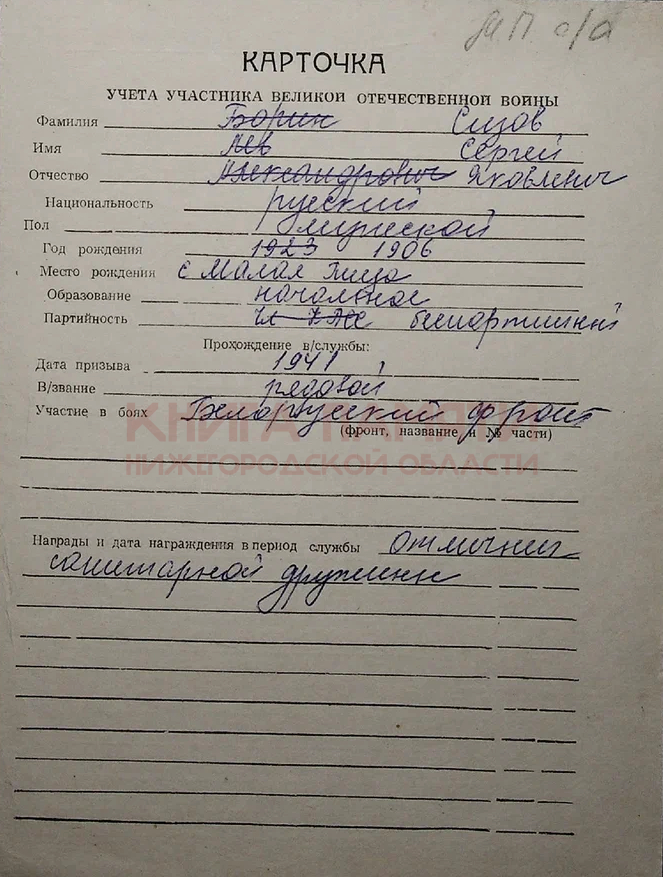 КАРТОЧКА
УЧЕТА УЧАСТНИКА ВЕЛИКОЙ ОТЕЧЕСТВЕННОЙ ВОЙНЫ
Фамилия Борин Сизов
Имя Лев Сергей
Отчество Александрович Яковлевич
Национальность русский
Пол мужской
Год рождения 1923 1906
Место рождения с Малая Пица
Образование начальное
Партийность беспартийный
Прохождение в/службы:
Дата призыва 1941
В/звание рядовой
Участие в боях Белорусский фронт
(фронт, название и № части)
КНИГА ПАМЯТИ
НИЖЕГОРОДСКОЙ ОБЛАСТИ
Награды и дата награждения в период службы Отличник
санитарной дружины